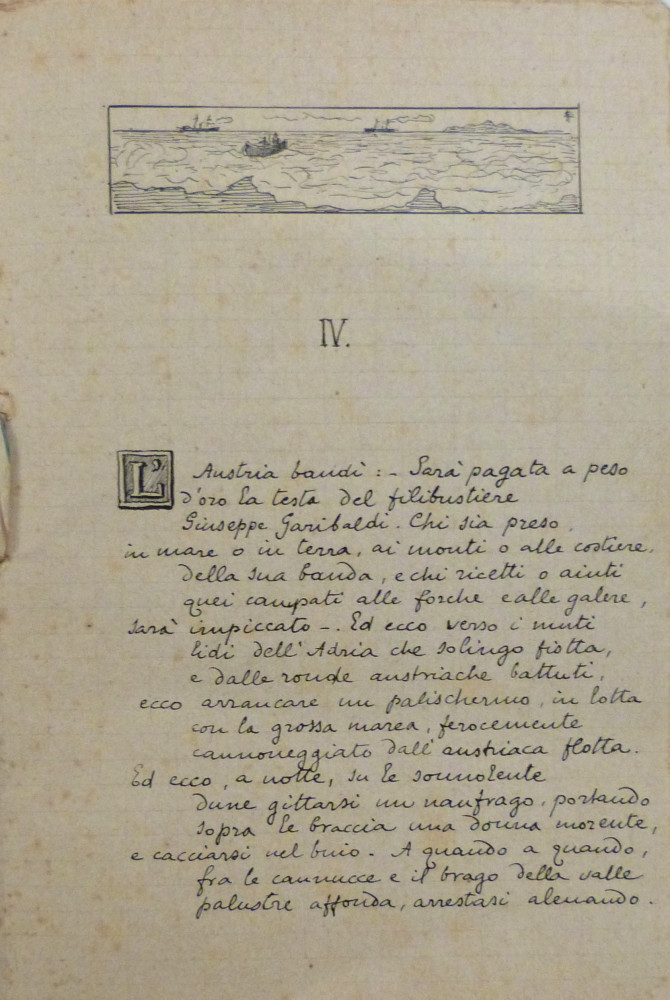 IV.
L'Austria bandì : - Sarà pagata a peso
d'oro la testa del filibustiere
Giuseppe Garibaldi. Chi sia preso,
in mare o in terra, ai monti o alle costiere,
della sua banda, e chi ricetti o aiuti
quei campati alle forche e alle galere,
sarà impiccato -. Ed ecco verso i muti
lidi dell'Adria che solingo fiotta,
e dalle ronde austriache battuti,
ecco arrancare un palischermo, in lotta
con la grossa marea, ferocemente
cannoneggiato dall'austriaca flotta.
Ed ecco, a notte, su le sonnolente
dune gittarsi un naufrago, portando
sopra le braccia una donna morente,
e cacciarsi nel buio. A quando a quando,
fra le cannucce e il brago della valle
palustre affonda, arrestasi alenando.